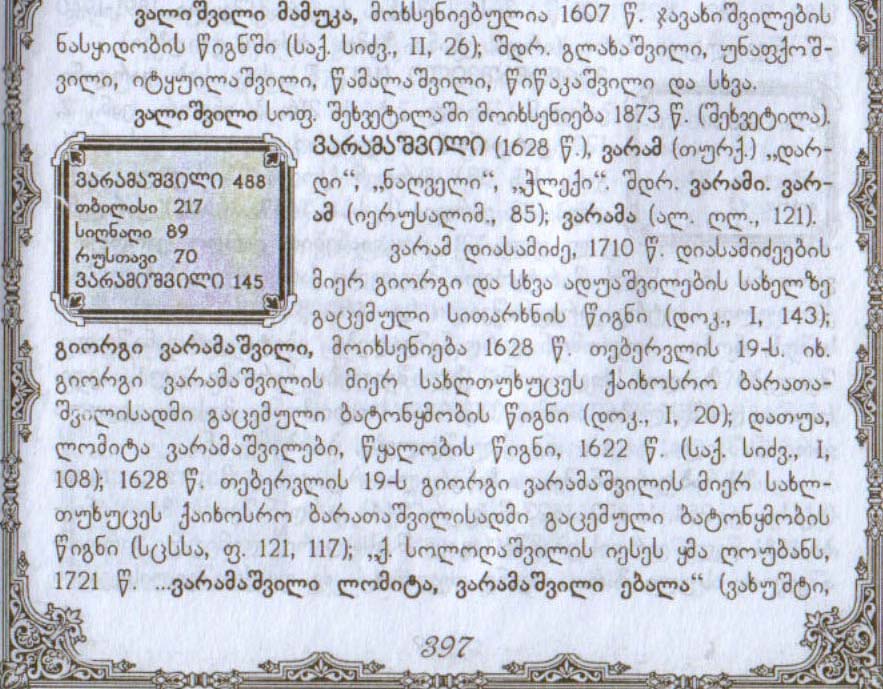 ვალიშვილი მამუკა, მოხსენიებულია 1607 წ. ჯავახიშვილების
ნასყიდობის წიგნში (საქ. სიძვ., II, 26); შდრ. გლახაშვილი, უნაფქოშ-
ვილი, იტყუილაშვილი, წამალაშვილი, წიწაკაშვილი და სხვა.
ვალიშვილი სოფ. შეხვეტილაში მოიხსენიება 1873 წ. (შეხვეტილა).
ვარამაშვილი 488
თბილისი 217
სიღნაღი 89
რუსთავი 70
ვარამიშვილი 145
ვარამაშვილი (1628 წ.), ვარამ (თურქ.) „დარ-
დი“, „ნაღველი“, „ჭლექი“. შდრ. ვარამი. ვარ-
ამ (იერუსალიმ., 85); ვარამა (ალ. ღლ., 121).
ვარამ დიასამიძე, 1710 წ. დიასამიძეების
მიერ გიორგი და სხვა ადუაშვილების სახელზე
გაცემული სითარხნის წიგნი (დოკ., I, 143);
გიორგი ვარამაშვილი, მოიხსენიება 1628 წ. თებერვლის 19-ს. იხ.
გიორგი ვარამაშვილის მიერ სახლთუხუცეს ქაიხოსრო ბარათა-
შვილისადმი გაცემული ბატონყმობის წიგნი (დოკ., I, 20); დათუა,
ლომიტა ვარამაშვილები, წყალობის წიგნი, 1622 წ. (საქ. სიძვ., I,
108); 1628 წ. თებერვლის 19-ს გიორგი ვარამაშვილის მიერ სახლ-
თუხუცეს ქაიხოსრო ბარათაშვილისადმი გაცემული ბატონყმობის
წიგნი (სცსსა, ფ. 121, 117); „ქ. სოლოღაშვილის იესეს ყმა ღოუბანს,
1721 წ. ...ვარამაშვილი ლომიტა, ვარამაშვილი ებალა“ (ვახუშტი,
397